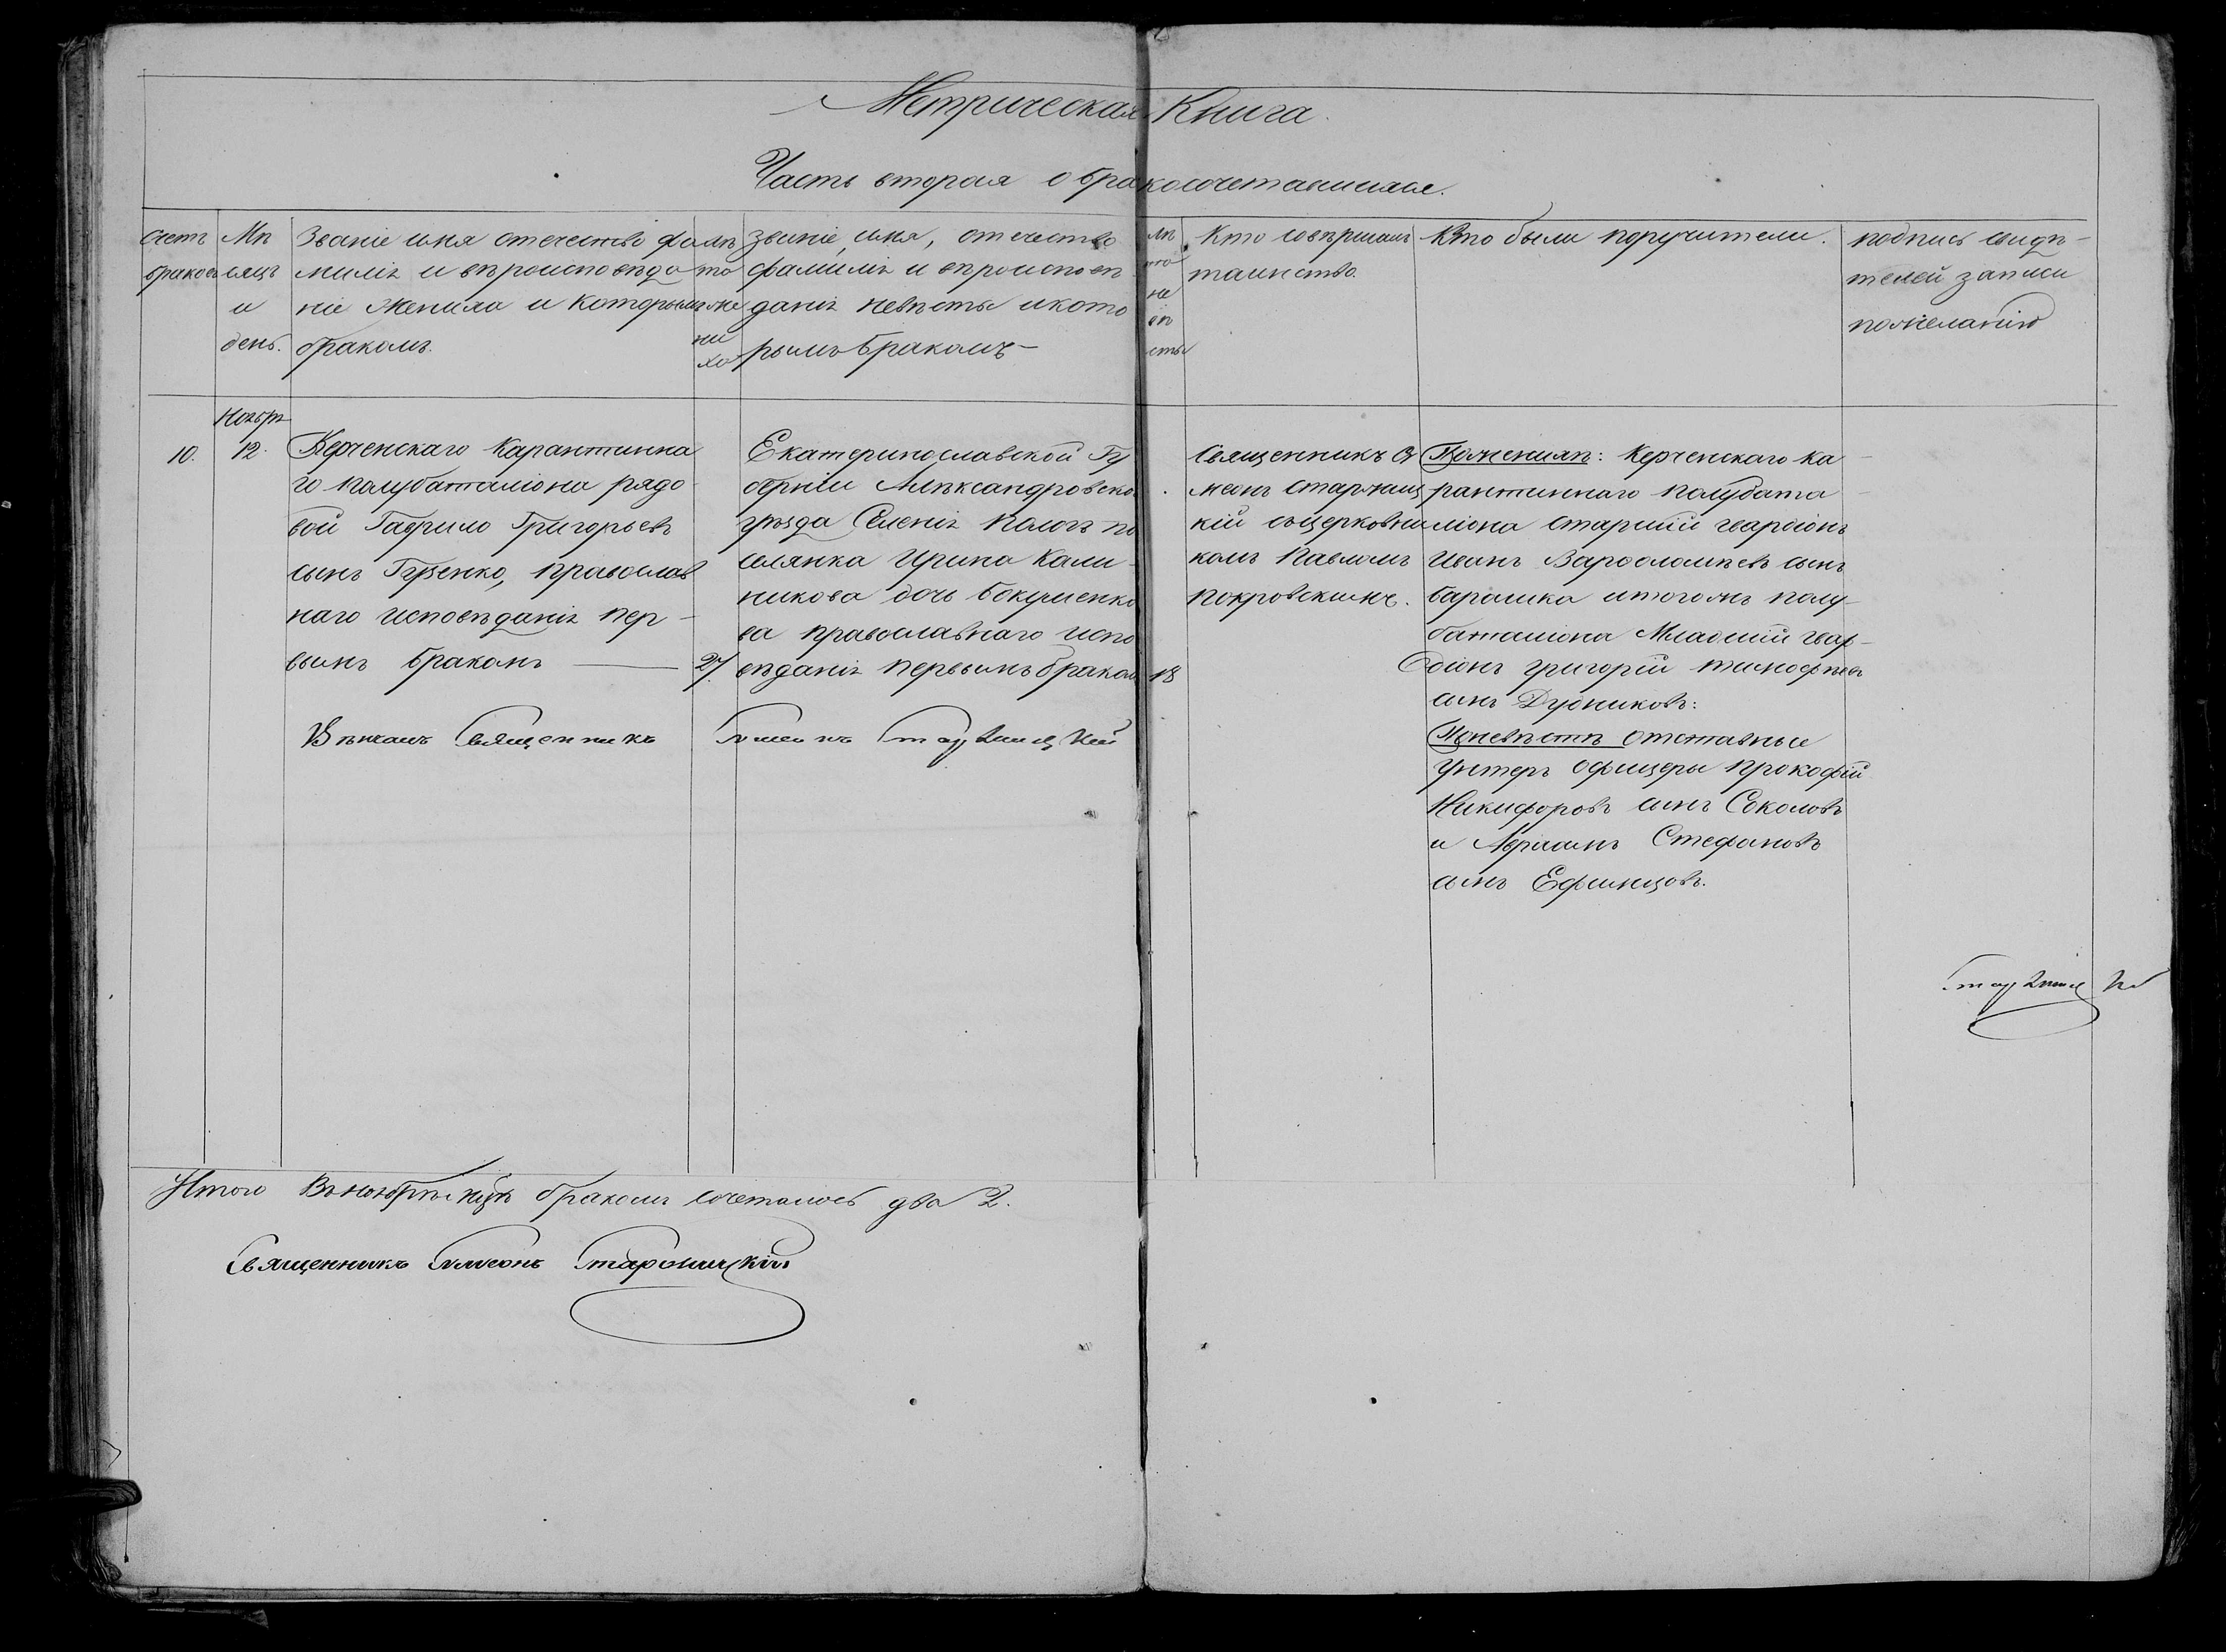 Метрическая Книга.
Часть вторая о бракосочетавшихся.
Счетъ браковъ
Мѣ
сяцъ
и
день.
Званіе имя отечество фа
миліѧ и вѣроисповѣда
ніе жениха и которымъ
бракомъ.
лѣ
то
же
ни
ха
Званіе, имя, отечество
фамиліѧ и вѣроисповѣ
даніѧ невѣсты и кото
рымъ бракомъ
лѣ
то
не
вѣ
сты
Кто совѣршалъ
таинство.
Кто были поручители.
подпись свидѣ-
телей записи
пожеланію
Ноѧбрѧ
10.
12.
Керченскаго карантинна
го полубаталіона рядо
вой Гаврило Григорьевъ
сынъ Гузенко, православ
наго исповѣданіѧ пер-
вымъ бракомъ
27.
Екатеринославской Гу
берніи Алѣксандровско
уѣзда Селеніѧ Пологъ по
селянка Ирина Кали-
никова дочь Бокуменко
ва православнаго испо
вѣданіѧ первымъ браком
18
Священникъ Си
меонъ Старжиц
кій съ церковни
комъ Павломъ
Покровскимъ.
По женихѣ: Керченскаго ка
рантиннаго полубата
ліона старшій гвардіонъ
Иванъ Варфоломѣевъ сынъ
Барашка и тогожъ полу-
баталіона Младшій гвар-
діонъ Григорій Тимофѣевъ
сынъ Дудниковъ:
По невѣстѣ отставные
унтеръ офицеры Прокофій
Никифоровъ сынъ Соколовъ
и Стефановъ
сынъ Ефимцовъ.
Вѣнчалъ Священникъ Симеонъ Старжицкій
Старжицкій
Итого въ ноѧбрѣ бракомъ сочеталось два 2.
Священникъ Симеонъ Старжицкій